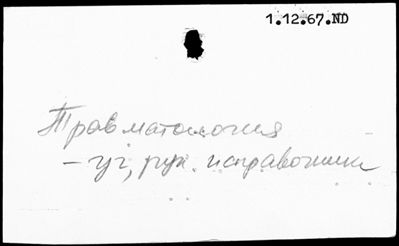 1.12.67.ND
Травматология
– уч, рук. и справочники